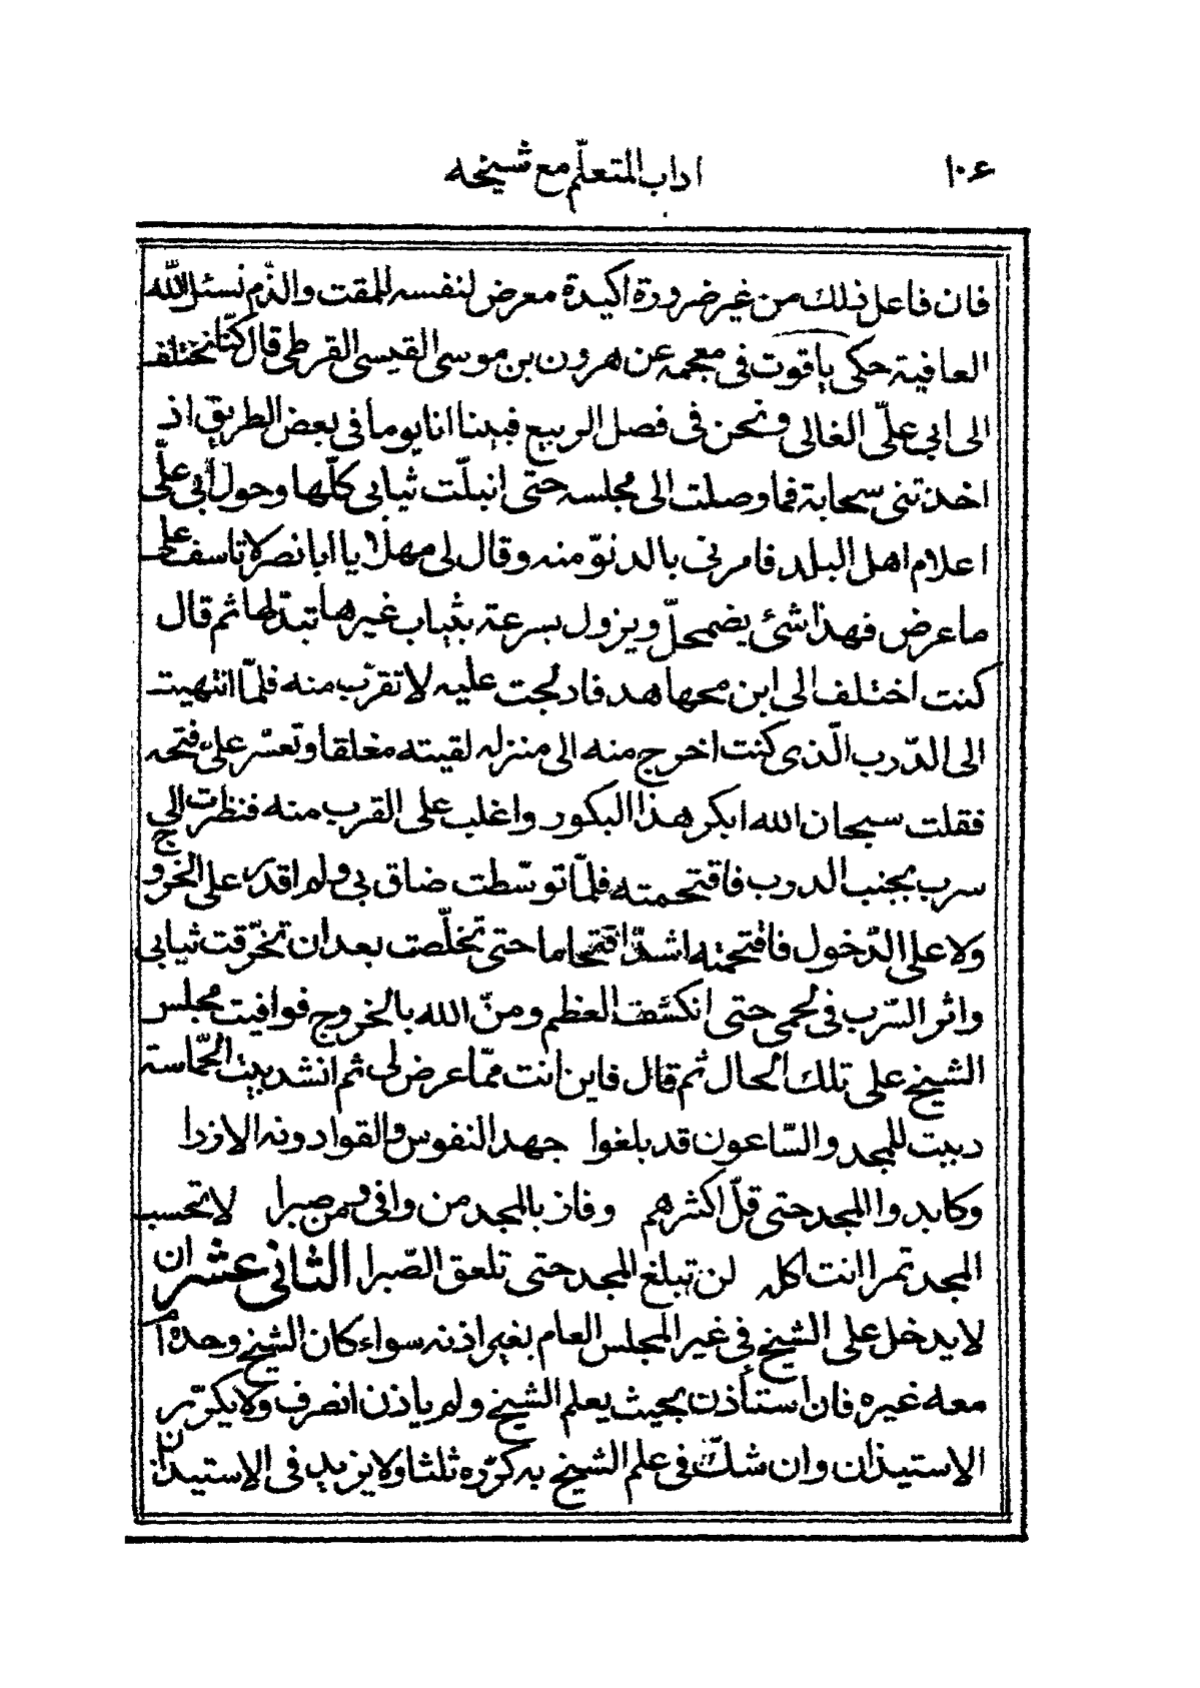 ١٠۶ اداب المتعلّم مع شيخه
فان فاعل ذلك من غير ضرورة اكيدة معرض لنفسه للمقت والذّم نسئل الله
العافية حكى ياقوت فى معجمه عن هرون بن موسى القيسى القرطى قال كنّا نختلف
الى ابى علىّ الغالى ونحن فى فصل الربيع فبينا انا يوما فى بعض الطريق اذ
اخذتنى سحابة فما وصلت الى مجلسه حتى انبلّت ثيابى كلّها وحول أبى علىّ
اعلام اهل البلد فامرنى بالدنوّ منه وقال لى مهلا يا ابا نصر لا تاسف على
ما عرض فهذا شئ يضمحلّ ويزول بسرعة بثياب غيرها تبدّلها ثم قال
كنت اختلف الى ابن مجاهد فادلجت عليه لاتقرّب منه فلمّا انتهيت
الى الدّرب الّذى كنت اخرج منه الى منزله لقيته مغلقا وتعسّر علىّ فتحه
فقلت سبحان الله ابكر هذا البكور واغلب على القرب منه فنظرت الى
سرب بجنب الدرب فاقتحمته فلمّا توسّطت ضاق بى ولم اقدر على الخروج
ولا على الدّخول فاقتحمته اشدّ اقتحاما حتى تخلّصت بعد ان تخرّقت ثيابى
واثر السّرب فى لحمى حتى انكشف العظم ومنّ الله بالخروج فوافيت مجلس
الشيخ على تلك الحال ثم قال فاين أنت ممّا عرض لى ثم انشد بيت الحّماسة
دببت للمجد والسّاعون قد بلغوا جهد النفوس والقوا دونه الازرا
وكابدوا المجد حتى قلّ اكثرهم وفاز بالمجد من وافى ومن صبرا لا تحسب
المجد تمرا انت اكله لن تبلغ المجد حتى تلعق الصّبرا الثانى عشر ان
لا يدخل على الشيخ فى غير المجلس العام بغير اذنه سواء كان الشيخ وحده ام
معه غيره فان استأذن بحيث يعلم الشيخ ولم ياذن انصرف ولا يكرّر
الاستيذان وان شكّ فى علم الشيخ به كرّره ثلثا ولا يزيد فى الاستيذان